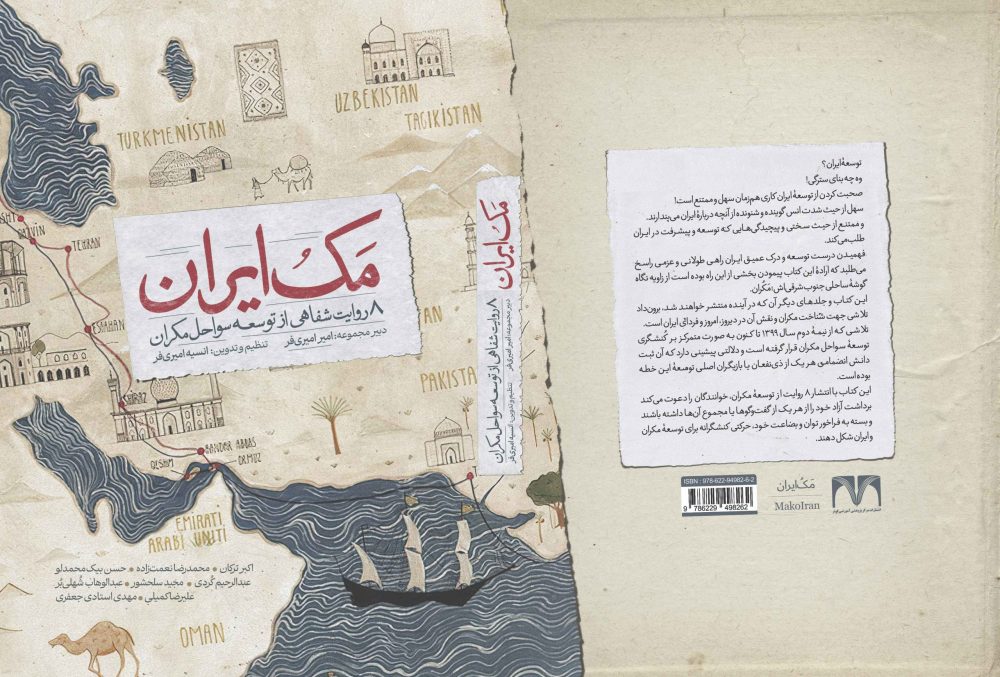 UZBEKISTAN
TAGIKISTAN
TURKMENISTAN
QAZVIN
TEHRAN
ESFAHAN
SHIRAZ
PAKISTA
BANDAR ABBAS
QESHM
ORMUZ
EMIRATI
ARABI UNITI
OMAN
مَکُ ایران
۸ روایت شفاهی از توسعه سواحل مکران
دبیر مجموعه: امیر امیری‌فر
تنظیم و تدوین: انسیه امیری‌فر
اکبر ترکان • محمدرضا نعمت‌زاده • حسن بیک محمدلو
عبدالرحیم کُردی • مجید سلحشور • عبدالوهاب شُهلی‌بُر
علیرضا کمیلی • مهدی استادی جعفری
مَکُ ایران
۸ روایت شفاهی از توسعه سواحل مکران
دبیر مجموعه: امیر امیری‌فر
تنظیم و تدوین: انسیه امیری‌فر
توسعهٔ ایران؟
وه چه بنای سترگی!
صحبت کردن از توسعهٔ ایران کاری هم‌زمان سهل و ممتنع است!
سهل از حیث شدت انس گوینده و شنونده از آنچه دربارهٔ ایران می‌پندارند.
و ممتنع از حیث سختی و پیچیدگی‌هایی که توسعه و پیشرفت در ایران
طلب می‌کند.
فهمیدن درست توسعه و درک عمیق ایران راهی طولانی و عزمی راسخ
می‌طلبد که ارادهٔ این کتاب پیمودن بخشی از این راه بوده است از زاویه نگاه
گوشهٔ ساحلی جنوب شرقی‌اش؛ مَکُران.
این کتاب و جلدهای دیگر آن که در آینده منتشر خواهند شد، برون‌داد
تلاشی جهت شناخت مکران و نقش آن در دیروز، امروز و فردای ایران است.
تلاشی که از نیمهٔ دوم سال ۱۳۹۹ تا کنون به صورت متمرکز بر کُنشگری
توسعهٔ سواحل مکران قرار گرفته است و دلالتی پیشینی دارد که آن ثبت
دانش انضمامی هر یک از ذی‌نفعان یا بازیگران اصلی توسعهٔ این خطه
بوده است.
این کتاب با انتشار ۸ روایت از توسعهٔ مکران، خوانندگان را دعوت می‌کند
برداشت آزاد خود را از هر یک از گفت‌وگوها یا مجموع آن‌ها داشته باشند
و بسته به فراخور توان و بضاعت خود، حرکتی کنشگرانه برای توسعهٔ مکران
و ایران شکل دهند.
ISBN : 978-622-94982-6-2
9 786229 498262
مَکُ ایران
MakoIran